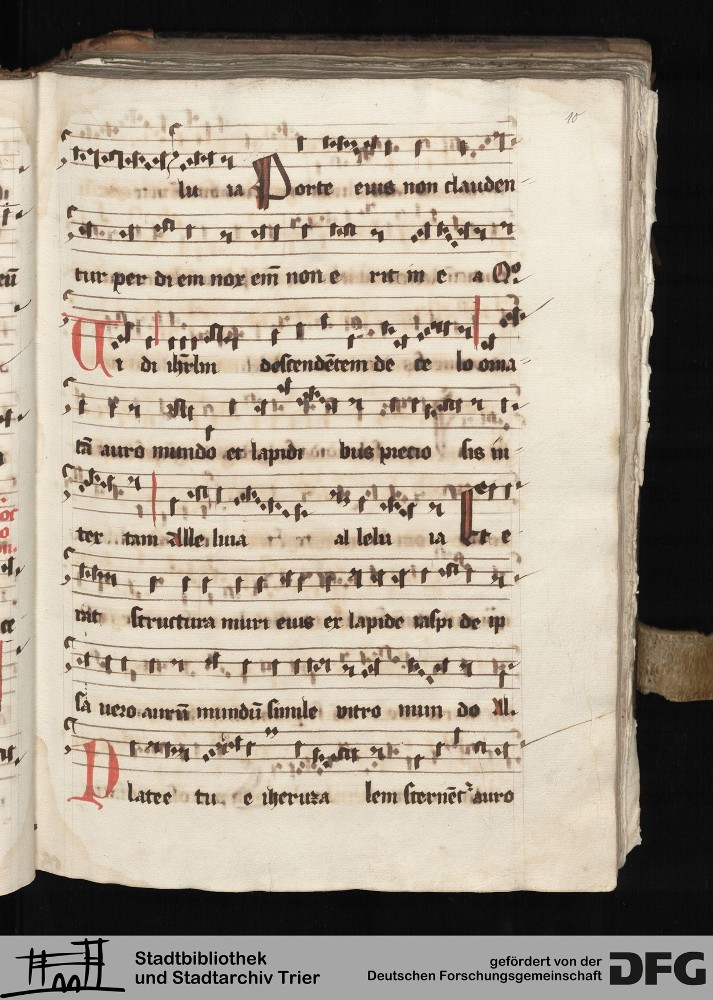 10
lu ia Porte eius non clauden
tur per di em nox em̄ non e rit in e a Qo
Ui di ihrlm descendētem de ce lo orna
tā auro mundo et lapidi bus precio sis in
ter tam Alle luia al lelu ia Et e
rat structura muri eius ex lapide iaspi de ip
sa vero aurū mundū simile vitro mun do Al.
Platee tu e iherusa lem sternēt auro
Stadtbibliothek
und Stadtarchiv Trier
gefördert von der
Deutschen Forschungsgemeinschaft
DFG